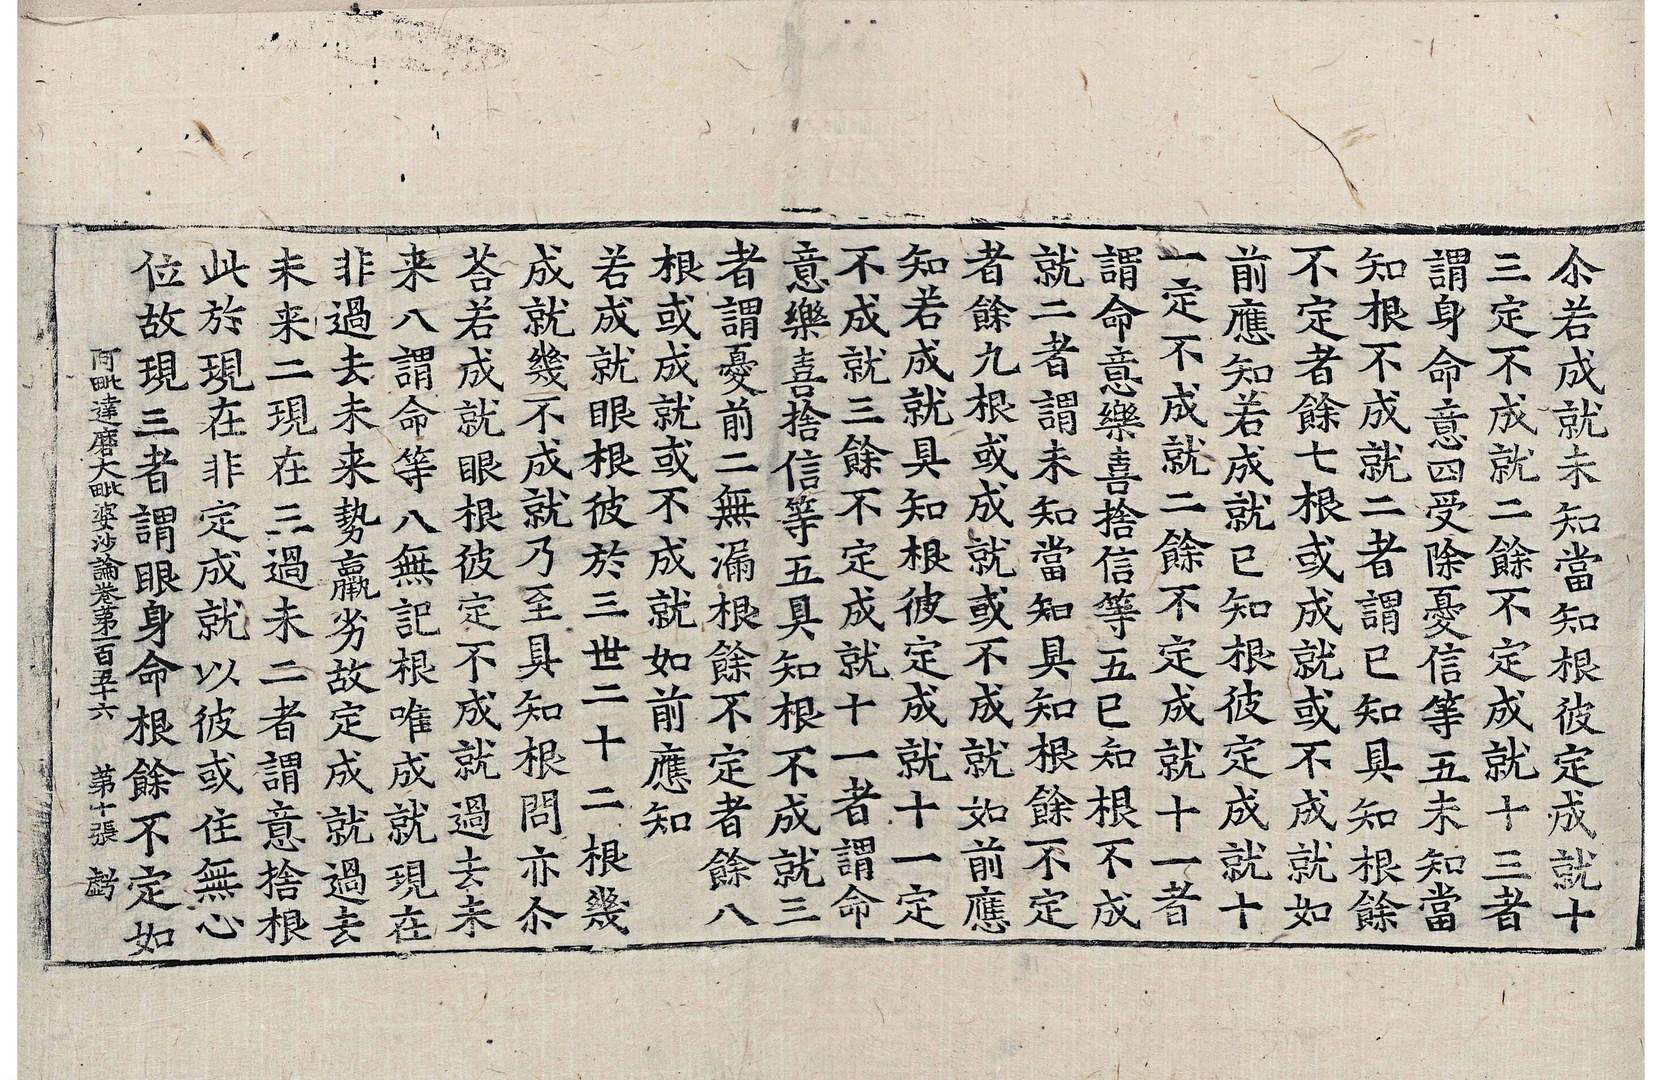 尒若成就未知當知根彼定成就十
三定不成就二餘不定成就十三者
謂身命意四受除憂信等五未知當
知根不成就二者謂已知具知根餘
不定者餘七根或成就或不成就如
前應知若成就已知根彼定成就十
一定不成就二餘不定成就十一者
謂命意樂喜捨信等五已知根不成
就二者謂未知當知具知根餘不定
者餘九根或成就或不成就如前應
知若成就具知根彼定成就十一定
不成就三餘不定成就十一者謂命
意樂喜捨信等五具知根不成就三
者謂憂前二無漏根餘不定者餘八
根或成就或不成就如前應知
若成就眼根彼於三世二十二根幾
成就幾不成就乃至具知根問亦尒
荅若成就眼根彼定不成就過去未
来八謂命等八無記根唯成就現在
非過去未来勢羸劣故定成就過去
未来二現在三過未二者謂意捨根
此於現在非定成就以彼或住無心
位故現三者謂眼身命根餘不定如
阿毗達磨大毗婆沙論卷第一百五十六 第十張 虧